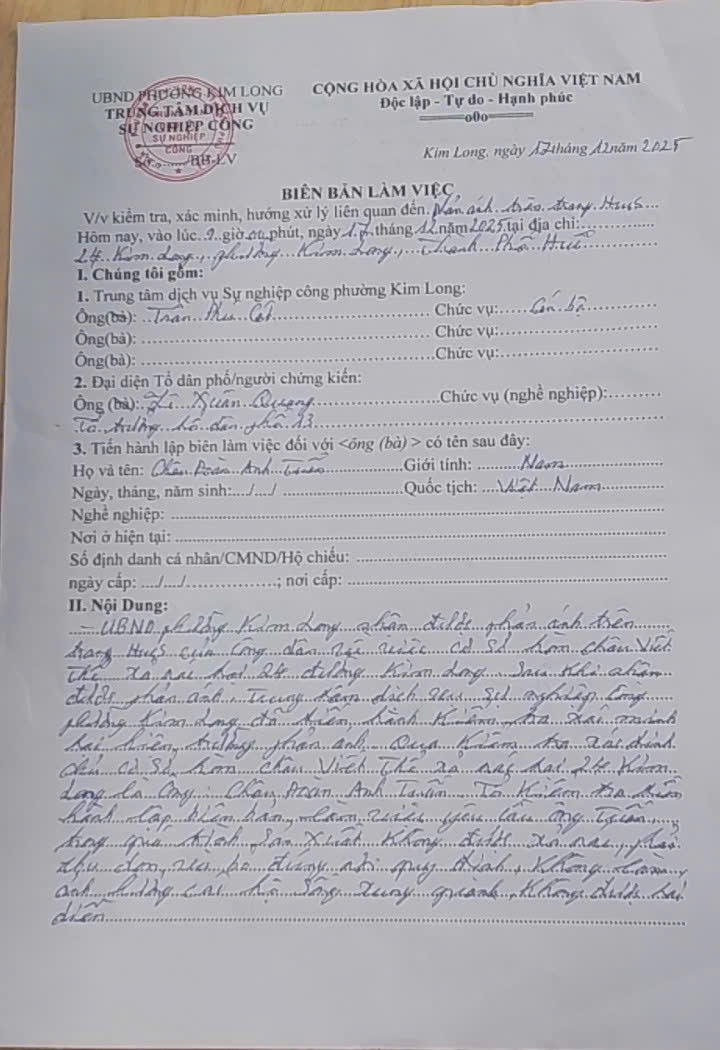 UBND PHƯỜNG KIM LONG
TRUNG TÂM DỊCH VỤ
SỰ NGHIỆP CÔNG
SỰ NGHIỆP
CÔNG
Số:......./BB-LV
CỘNG HÒA XÃ HỘI CHỦ NGHĨA VIỆT NAM
Độc lập - Tự do - Hạnh phúc
===o0o===
Kim Long, ngày 17 tháng 12 năm 2025
BIÊN BẢN LÀM VIỆC
V/v kiểm tra, xác minh, hướng xử lý liên quan đến: phản ánh trên trang HueS
Hôm nay, vào lúc 9 giờ 00 phút, ngày 17 tháng 12 năm 2025 tại địa chỉ:
24 Kim Long, phường Kim Long, Thành Phố Huế
I. Chúng tôi gồm:
1. Trung tâm dịch vụ Sự nghiệp công phường Kim Long:
Ông(bà): Trần Chức vụ: Cán bộ
Ông(bà): Chức vụ:
Ông(bà): Chức vụ:
2. Đại diện Tổ dân phố/người chứng kiến:
Ông (bà): Xuân Quang Chức vụ (nghề nghiệp):
Tổ trưởng tổ dân phố 13
3. Tiến hành lập biên làm việc đối với <ông (bà) > có tên sau đây:
Họ và tên: Châu Đoàn Anh Tuấn Giới tính: Nam
Ngày, tháng, năm sinh:.../.../ Quốc tịch: Việt Nam
Nghề nghiệp:
Nơi ở hiện tại:
Số định danh cá nhân/CMND/Hộ chiếu:
ngày cấp: .../.../............; nơi cấp:
II. Nội Dung:
- UBND phường Kim Long nhận được phản ánh trên
trang HueS của công dân về việc cơ sở hòm Châu Viết
Thế xả rác tại 24 đường Kim Long. Sau khi nhận
được phản ánh, Trung tâm dịch vụ Sự nghiệp Công
phường Kim Long đã tiến hành kiểm tra xác minh
tại hiện trường phản ánh. Qua kiểm tra xác định
chủ cơ sở hòm Châu Viết Thế xả rác tại 24 Kim
Long là ông: Châu Đoàn Anh Tuấn. Tổ kiểm tra tiến
hành lập biên bản, làm việc yêu cầu ông Tuấn,
trong quá trình sản xuất không được xả rác, phải
thu dọn, bỏ đúng nơi quy định, không làm
ảnh hưởng các hộ sống xung quanh, không được tái
diễn